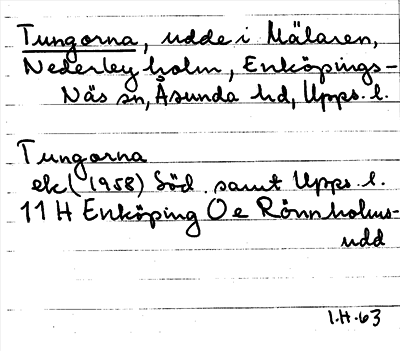 Tungorna, udde i Mälaren,
Nederley holm, Enköpings-
Näs sn, Åsunda hd, Upps. l.
Tungorna
ek (1958) Söd. samt Upps. l.
11 H Enköping O e Rönnholms-
udd
I.H.63